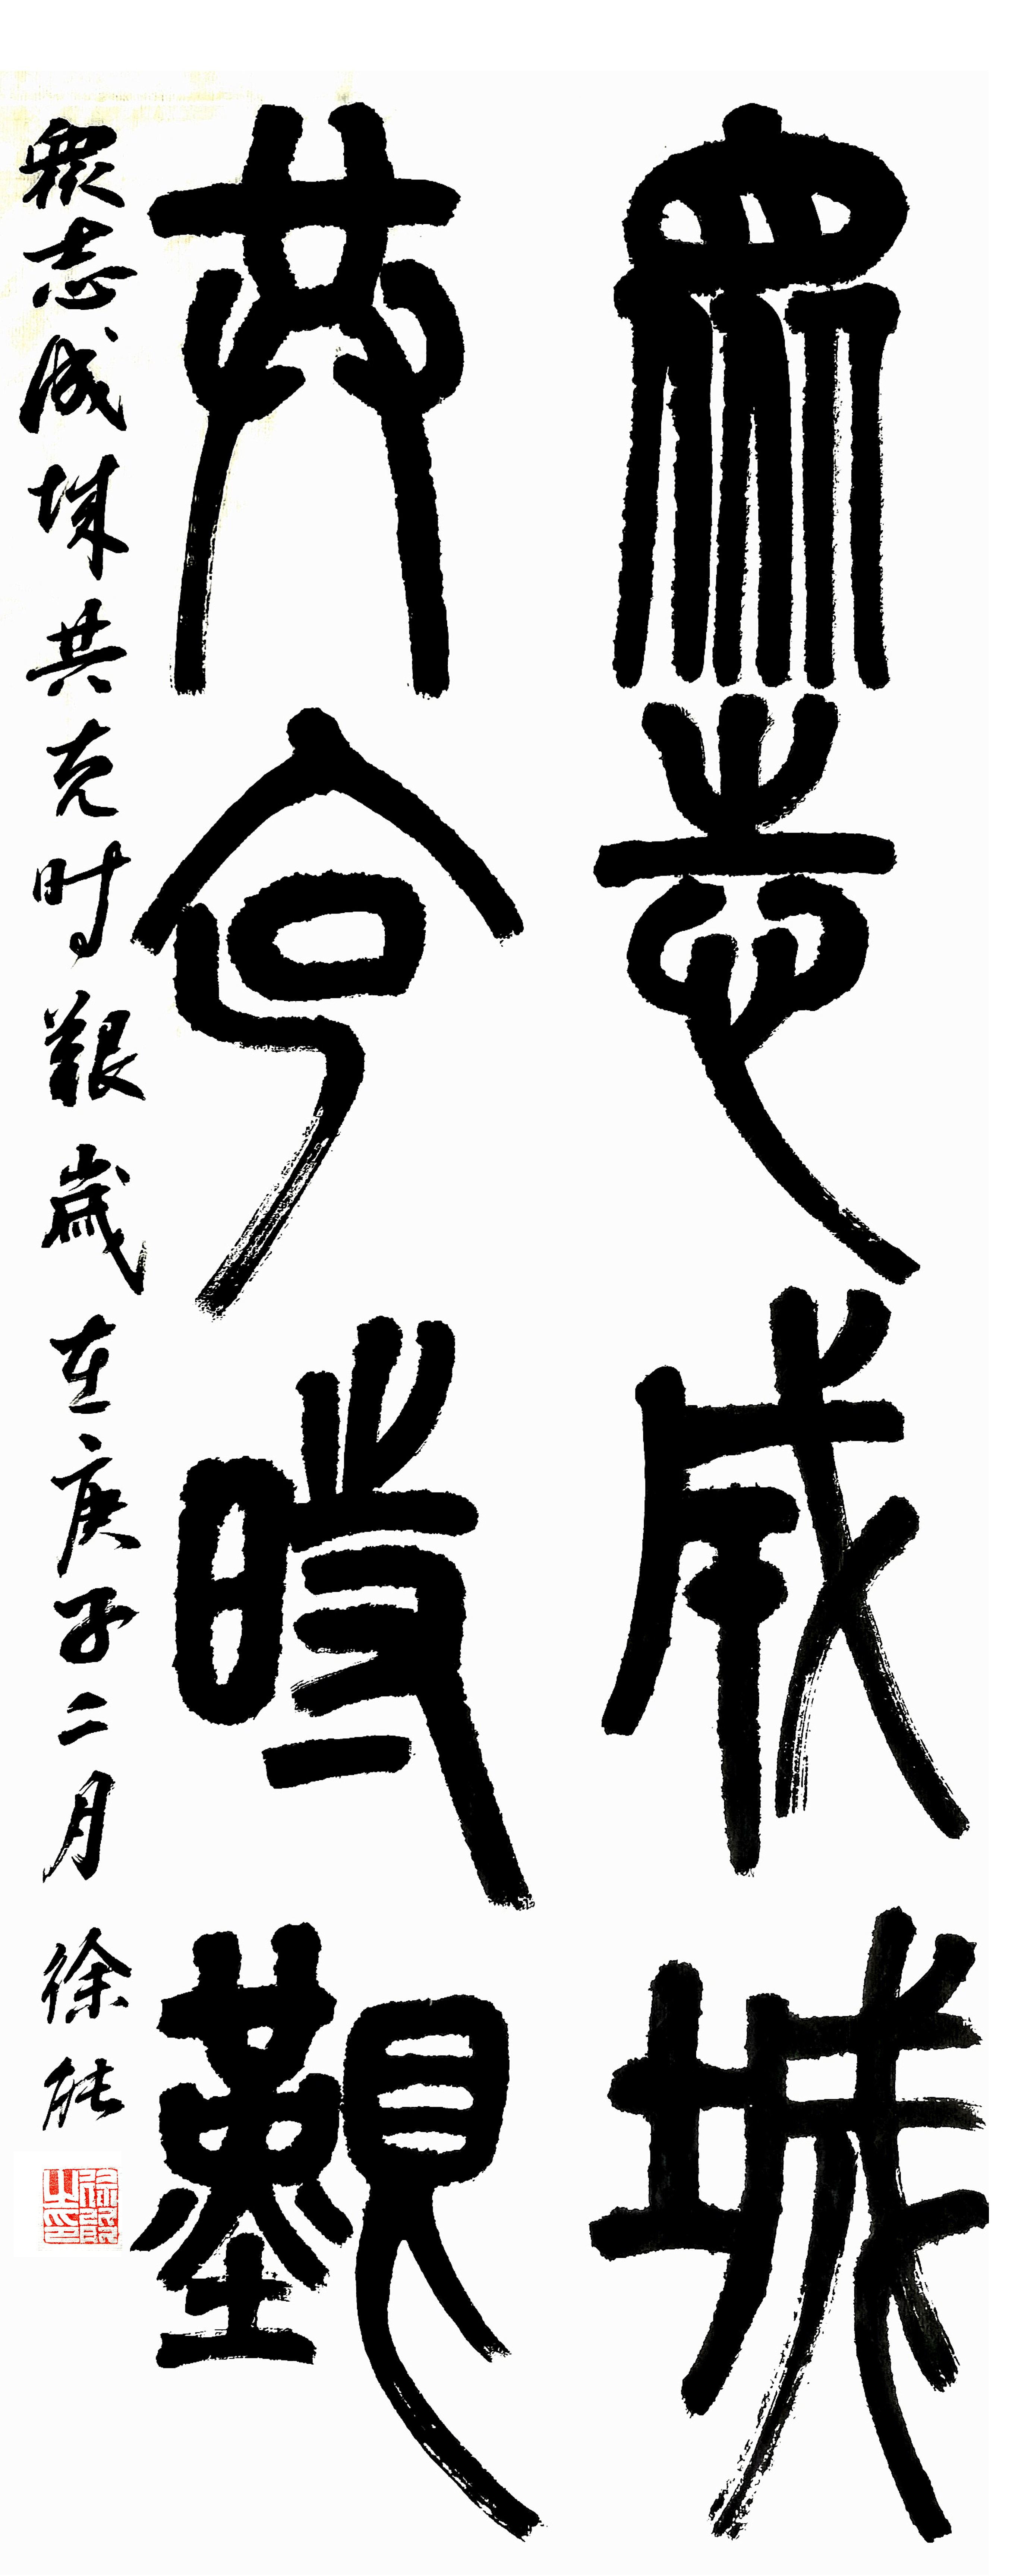 眾志成城
共克時艱
眾志成城共克时艱歲在庚子二月徐能